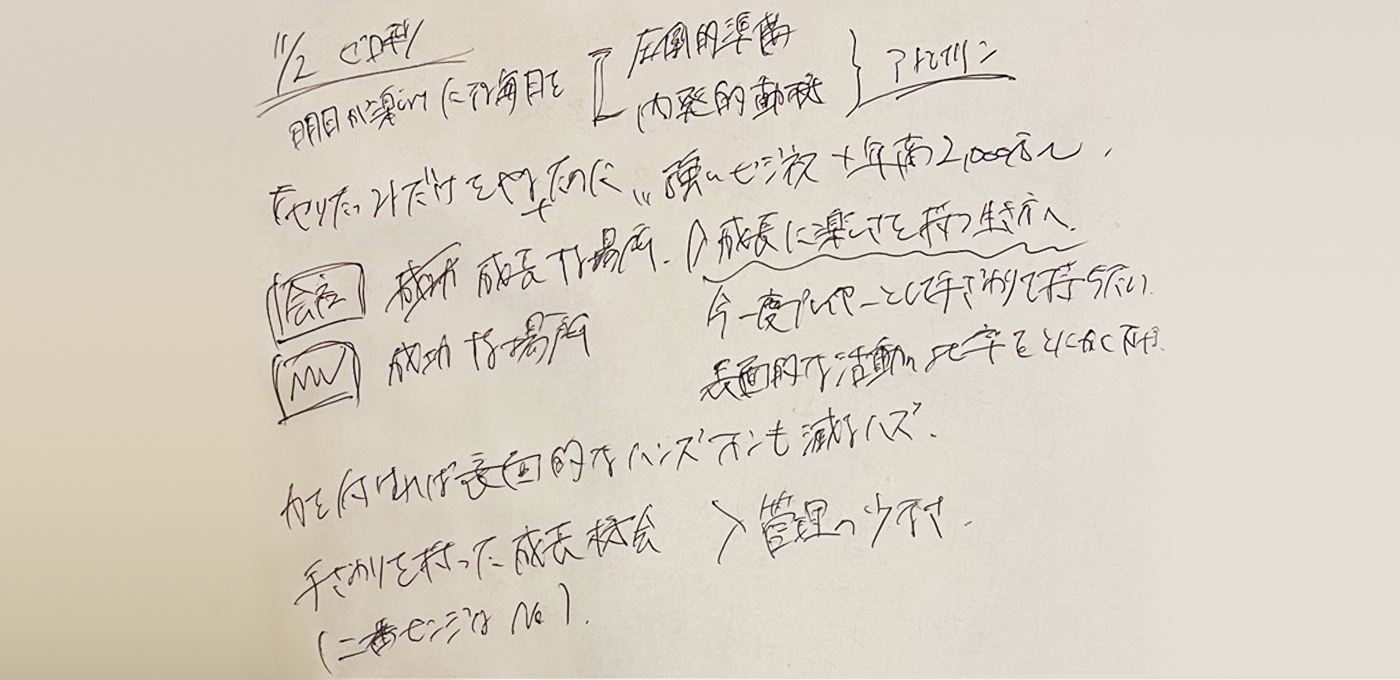 11/2
明日が楽しみになる毎日を
圧倒的準備
内発的動機
アドレナリン
やりたいコトだけをやるために 強いビジネス + 年商2,000万〜
会社 成長する場所.
成長に楽しさを持つ生き方へ
MW 成功する場所
今一度プレイヤーとして手ざわりを持ちたい.
表面的な活動の比率をとにかく
力を付ければ表面的なハンズオンも減るハズ.
手ざわりを持った成長機会 > 管理の
(二番センジは No).